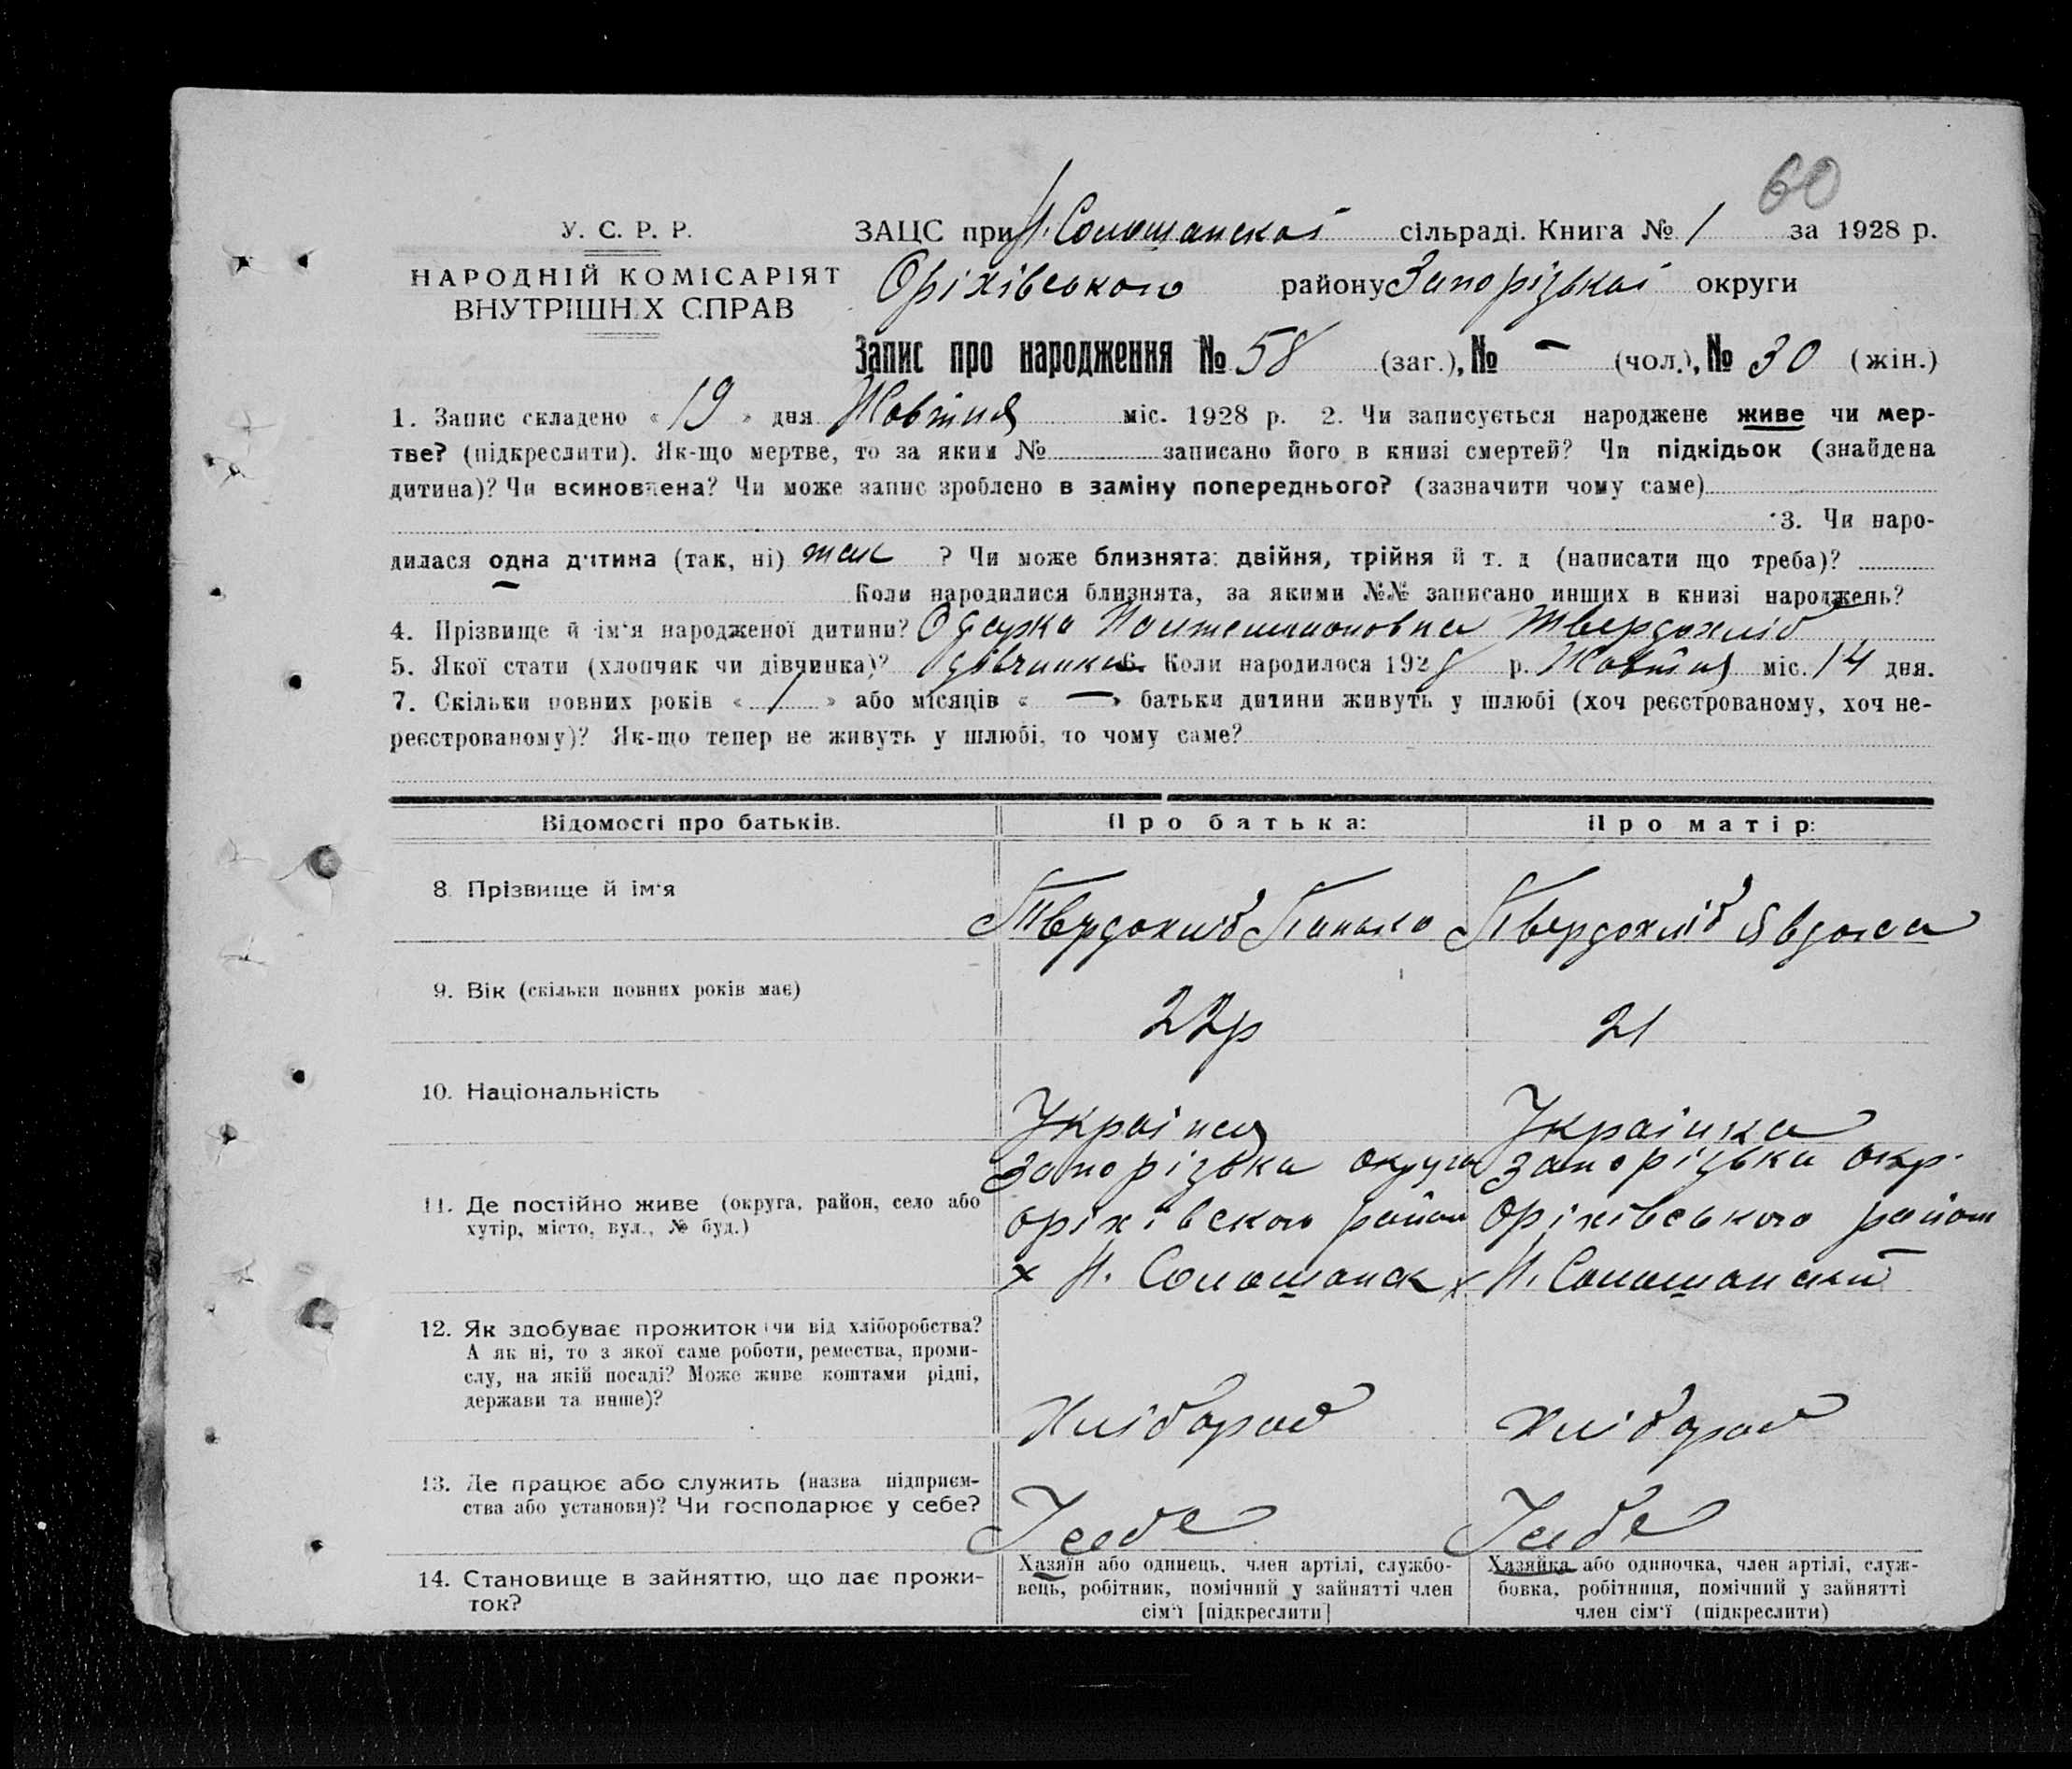 60
У. С. Р. Р.
НАРОДНІЙ КОМІСАРІЯТ
ВНУТРІШН.Х СПРАВ
ЗАЦС при Н. Солошанской сільраді. Книга № 1 за 1928 р.
Оріхівського району Запорізької округи
Запис про народження № 58 (заг.), № – (чол.), № 30 (жін.)
1. Запис складено « 19 » дня Жовтня міс. 1928 р. 2. Чи записується народжене живе чи мер-
тве? (підкреслити). Як-що мертве, то за яким № записано його в книзі смертей? Чи підкідьок (знайдена
дитина)? Чи всиновлена? Чи може запис зроблено в заміну попереднього? (зазначити чому саме)
3. Чи наро-
дилася одна дитина (так, ні) так ? Чи може близнята: двійня, трійня й т. д (написати що треба)?
Коли народилися близнята, за якими №№ записано инших в книзі народжень?
4. Прізвище й ім'я народженої дитини? Одарка Твердохліб
5. Якої стати (хлопчик чи дівчинка)? дівчинка 6. Коли народилося 1928 р. Жовтня міс. 14 дня.
7. Скільки повних років « 1 » або місяців « — » батьки дитини живуть у шлюбі (хоч реєстрованому, хоч не-
реєстрованому)? Як-що тепер не живуть у шлюбі, то чому саме?
Відомості про батьків. Про батька: Про матір:
8. Прізвище й ім'я Твердохліб Панько Твердохліб Явдоха
9. Вік (скільки повних років має) 22р 21
10. Національність Украінец Украінка
11. Де постійно живе (округа, район, село або
хутір, місто, вул., № буд.)
Запорізька округа
оріхівского району
х Н. Солошанск
Запорізька окр.
Оріхівського району
х Н. Солошанский
12. Як здобуває прожиток чи від хліборобства?
А як ні, то з якої саме роботи, ремества, проми-
слу, на якій посаді? Може живе коштами рідні,
держави та инше)?
Хлібороб Хлібороб
13. Де працює або служить (назва підприєм-
ства або установи)? Чи господарює у себе?
У себе У себе
14. Становище в зайняттю, що дає прожи-
ток?
Хазяїн або одинець, член артілі, службо-
вець, робітник, помічний у зайнятті член
сім'ї [підкреслити]
Хазяйка або одиночка, член артілі, служ-
бовка, робітниця, помічний у зайнятті
член сім'ї (підкреслити)